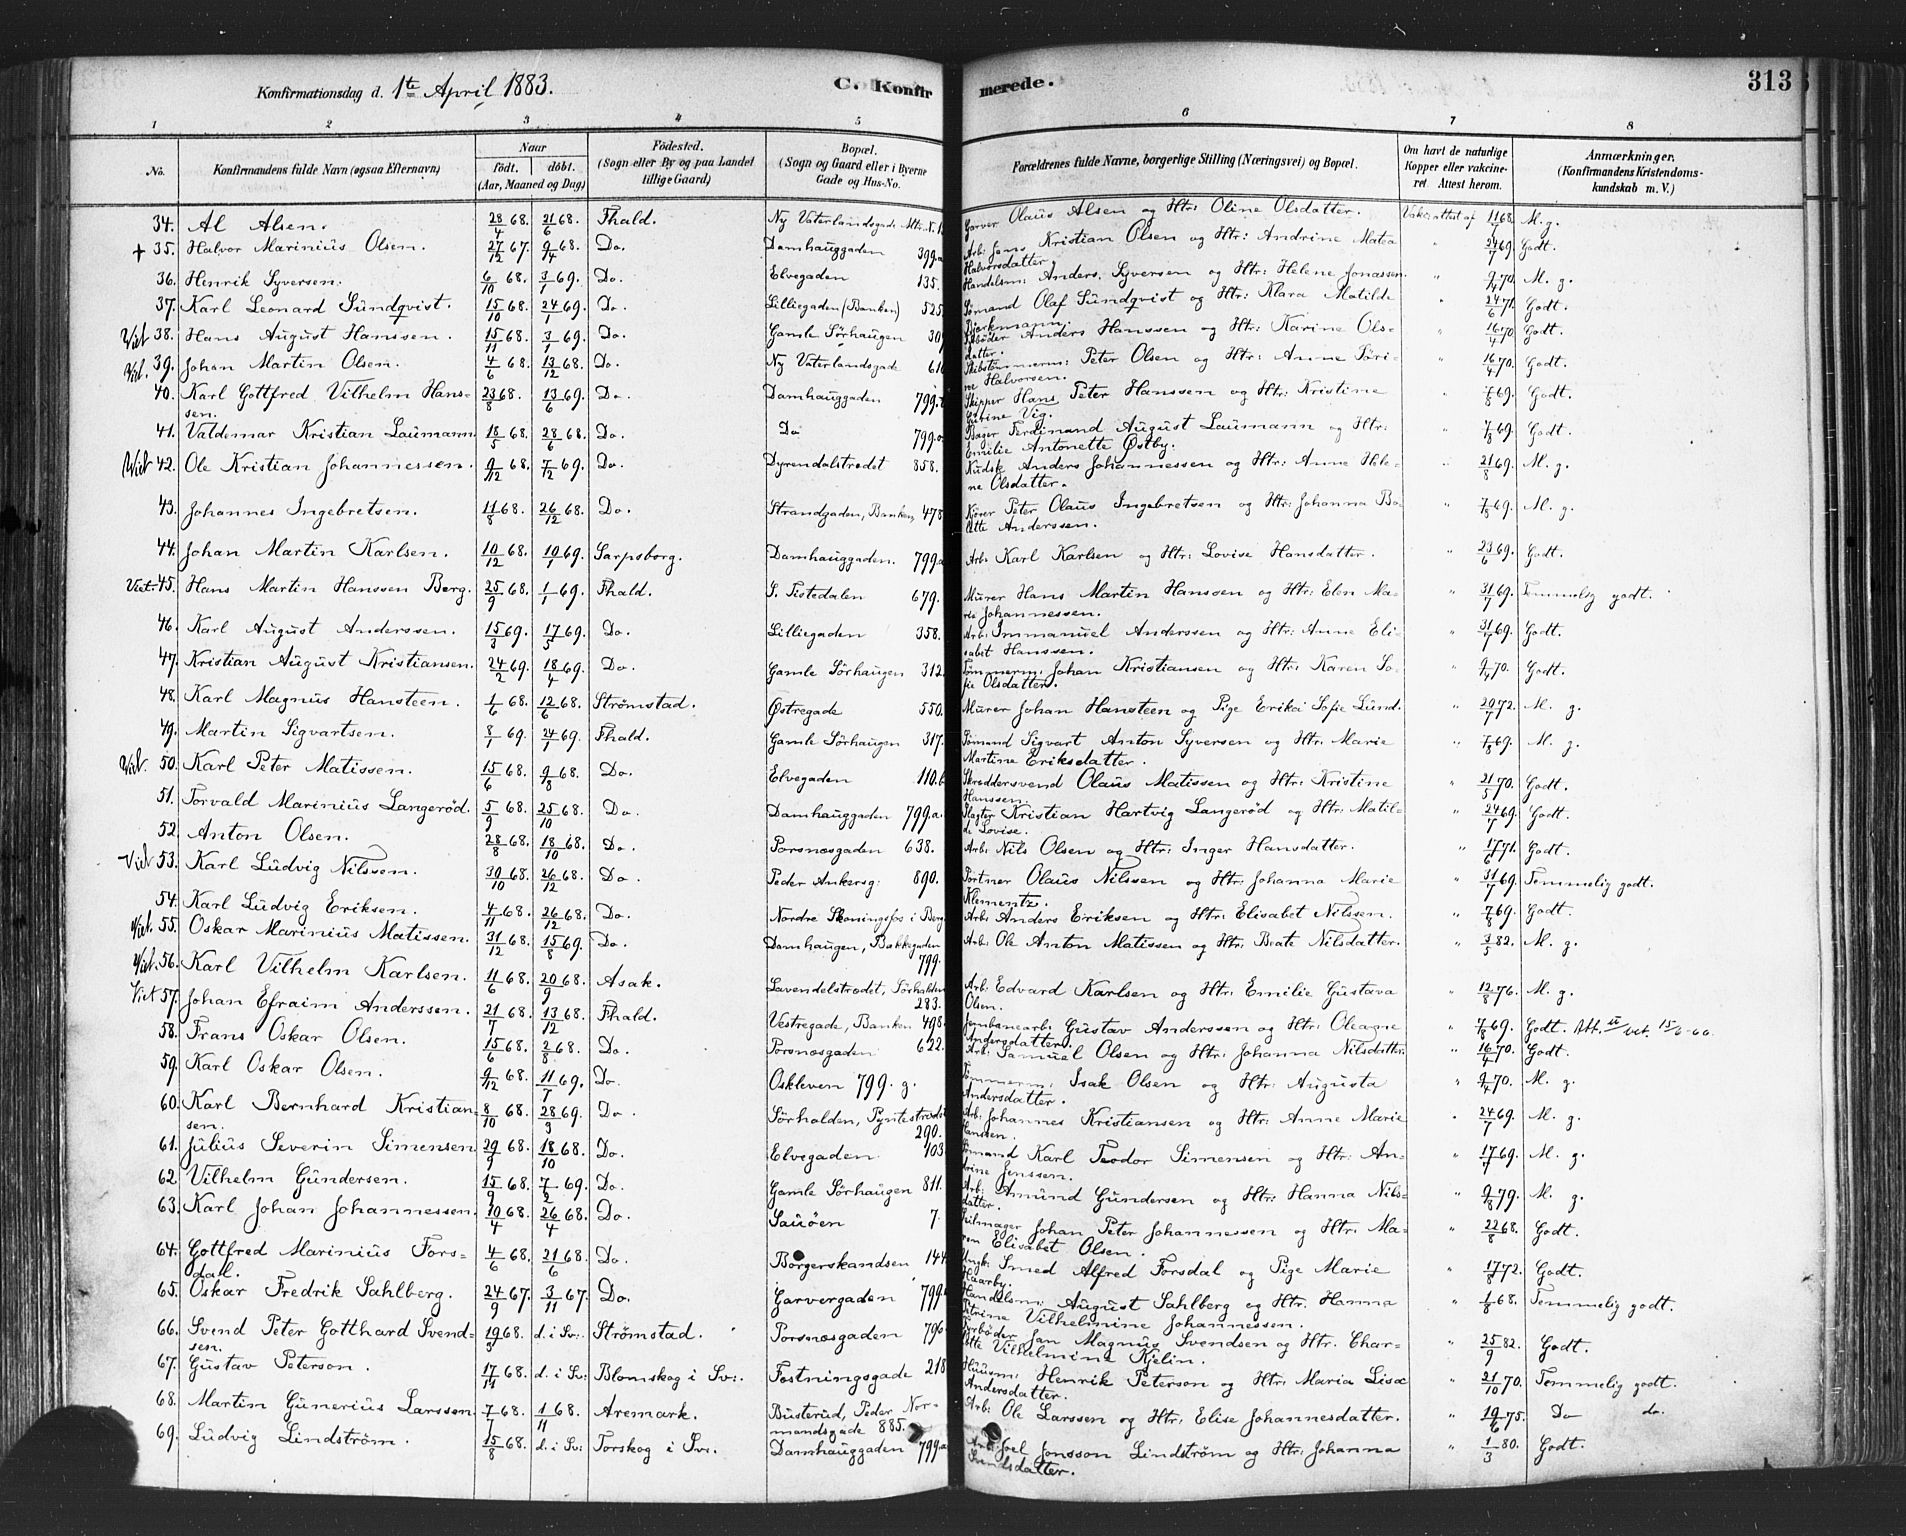 Konfirmationsdag d. 1te April 1883. C. Konfirmerede. 313
1 2 3 4 5 6 7 8
No. Konfirmandens fulde Navn (ogsaa Efternavn) Naar født. døbt. (Aar, Maaned og Dag) Fødested. (Sogn eller By og paa Landet tillige Gaard) Bopæl. (Sogn og Gaard eller i Byerne Gade og Hus-No. Forældrenes fulde Navne, borgerlige Stilling (Næringsvei) og Bopæl. Om havt de naturlige Kopper eller vakcineret. Attest herom. Anmærkninger. (Konfirmandens Kristendomskundskab m. V.)
34. Al Alsen. 28/4 68. 21/6 68. Fhald. Ny Vaterlandsgade Garver Olaus Alsen og Htr: Oline Olsdatter. 68. M. g.
+ 35. Halvor Marinius Olsen. 27/12 67. 9/4 68. Do. Damhauggaden 399.a Arb: Jens Kristian Olsen og Htr: Andrine Matea Halvorsdatter. " 24/7 69. Godt.
36. Henrik Syversen. 6/10 68. 3/1 69. Do. Elvegaden 135. Handelsm: Anders Syversen og Htr: Helene Jonassen. " 9/4 70. M. g.
37. Karl Leonard Sundqvist. 15/10 68. 24/1 69. Do. Lilliegaden (Banken) 525. Sømand Olaf Sundqvist og Htr: Klara Matilde Bjørkmann. " 24/6 71. Godt.
Viet 38. Hans August Hanssen. 15/11 68. 3/1 69. Do. Gamle Sørhaugen 309 Anders Hanssen og Htr: Karine Olsdatter. " 16/4 70. Godt.
Viet. 39. Johan Martin Olsen. 4/6 68. 13/12 68. Do. Ny Vaterlandsgade 616 Skibstømmerm: Peter Olsen og Htr: Anne Sørine Halvorsen. " 16/4 70. Godt.
40. Karl Gottfred Vilhelm Hanssen. 23/8 68. 13/6 69. Do. Damhauggaden 799. Skipper Hans Peter Hanssen og Htr: Kristine Vig. " 7/8 69. Godt.
41. Valdemar Kristian Laumann. 18/5 68. 28/6 68. Do. Do 799.a Bager Ferdinand August Laumann og Htr: Emilie Antonette Østby. " 7/8 69. Godt.
Viet 42. Ole Kristian Johannessen. 9/12 68. 7/2 69. Do. Dyrendalstrædet 858. Kudsk Anders Johannessen og Htr: Anne Helene Olsdatter. " 21/8 69. M. g.
43. Johannes Ingebretsen. 11/8 68. 26/12 68. Do. Strandgaden, Banken, 478 Kjører Peter Olaus Ingebretsen og Htr: Johanna Anderssen. " 7/8 69. M. g.
44. Johan Martin Karlsen. 10/12 68. 10/1 69. Sarpsborg. Damhauggaden. 799.a Arb: Karl Karlsen og Htr: Lovise Hansdatter. " 23/6 69. Godt.
Viet. 45. Hans Martin Hanssen Berg. 25/9 68. 1/1 69. Fhald. S. Tistedalen 679. Murer Hans Martin Hanssen og Htr: Elen Marie Johannessen. " 31/7 69. Temmelig godt.
46. Karl August Anderssen. 15/3 69. 17/5 69. Do. Lilliegaden 358. Arb: Immanuel Anderssen og Htr: Anne Elisabet Hanssen. " 31/7 69. Godt.
47. Kristian August Kristiansen. 24/2 69. 18/4 69. Do. Gamle Sørhaugen 312. Tømmerm: Johan Kristiansen og Htr: Karen Sofie Olsdatter. " 9/4 70. Godt.
48. Karl Magnus Hansteen. 1/6 68. 12/6 68. Strømstad. Østregade 550. Murer Johan Hansteen og Pige Erika Sofie Lund. " 20/7 72. M. g.
49. Martin Sigvartsen. 8/1 69. 24/1 69. Fhald. Gamle Sørhaugen 317. Sømand Sigvart Anton Syversen og Htr: Marie Martine Eriksdatter. " 7/8 69. M. g.
Viet. 50. Karl Peter Matissen. 15/6 68. 9/8 68. Do. Elvegaden 110.b Skreddersvend Olaus Matissen og Htr: Kristine Hanssen. " 21/5 70. Godt.
51. Torvald Marinius Langerød. 5/9 68. 25/10 68. Do. Damhauggaden 799.a. Slagter Kristian Hartvig Langerød og Htr: Matilde Lovise. " 24/7 69. Godt.
52. Anton Olsen. 28/8 68. 18/10 68. Do. Porsnæsgaden 638. Arb: Nils Olsen og Htr: Inger Hansdatter. " 17/6 71. Godt.
Viet 53. Karl Ludvig Nilssen. 30/10 68. 26/12 68. Do. Peder Ankersg: 890. Portner Olaus Nilssen og Htr: Johanna Marie Klementz. " 31/7 69. Temmelig godt.
54. Karl Ludvig Eriksen. 4/11 68. 26/12 68. Do. Nordre Skoningsfos i Berg Arb: Anders Eriksen og Htr: Elisabet Nilssen. " 7/8 69. Godt.
Viet. 55. Oskar Marinius Matissen. 31/12 68. 15/8 69. Do. Damhaugen, Bakkegaden 799. Arb: Ole Anton Matissen og Htr: Beate Nilsdatter. " 3/5 82. M. g.
Viet. 56. Karl Vilhelm Karlsen. 11/6 68. 20/9 68. Asak. Lavendelstrædet, Sørhalden 283. Arb: Edvard Karlsen og Htr: Emilie Gustava Olsen. " 12/8 76. M. g.
Viet 57. Johan Efraim Anderssen. 21/7 68. 13/12 68. Fhald. Vestregade, Banken 498. Jernbanearb: Gustav Anderssen og Htr: Oleagne Andersdatter. " 7/8 69. Godt.
58. Frans Oskar Olsen. 15/6 68. 2/8 68. Do. Porsnæsgaden 622. Arb: Samuel Olsen og Htr: Johanna Nilsdatter. " 16/4 70. Godt.
59. Karl Oskar Olsen. 9/12 68. 11/7 69. Do. Oskleven 799. g. Tømmerm: Isak Olsen og Htr: Augusta Andersdatter. " 9/4 70. M. g.
60. Karl Bernhard Kristiansen. 8/10 68. 28/3 69. Do. Sørhalden, Pyntestrædet 290. Arb: Johannes Kristiansen og Htr: Anne Marie Hanssen. " 24/7 69. M. g.
61. Julius Severin Simensen 29/9 68. 18/10 68. Do. Elvegaden 103 Sømand Karl Teodor Simensen og Htr: Andrine Jenssen. " 17/7 69. M. g.
62. Vilhelm Gundersen. 15/9 68. 7/2 69. Do. Gamle Sørhaugen 811. Arb: Amund Gundersen og Htr: Hanna Nilsdatter. " 9/8 79. M. g.
63. Karl Johan Johannessen. 10/4 68. 26/4 68. Do. Sauøen 7. Seilmager Johan Peter Johannessen og Htr: Maren Elisabet Olsen. " 22/8 68. Godt.
64. Gottfred Marinius Forsdal. 4/6 68. 21/6 68. Do. Borgerskandsen 144 Ungk: Smed Alfred Forsdal og Pige Marie Haarby. " 17/8 72. Godt.
65. Oskar Fredrik Sahlberg. 24/9 67. 3/11 67. Do. Garvergaden 799 Handelsm: August Sahlberg og Htr. Hanna Petrine Vilhelmine Johannessen. " 1/8 68. Temmelig godt.
66. Svend Peter Gotthard Svendsen. 19/3 68. d. i Sv: Strømstad. Porsnæsgaden 796 Jan Magnus Svendsen og Htr. Charlotte Vilhelmine Kjelin. " 25/9 82. Godt.
67. Gustav Peterson. 17/11 68. d. i Sv: Blomskog i Sv:. Fæstningsgade 218 Huusm: Henrik Peterson og Htr: Maria Lisa Andersdatter. " 21/10 70. Temmelig godt.
68. Martin Gunerius Larssen. 7/7 68. 1/11 68. Aremark. Busterud, Peder Normandsgade 885. Arb: Ole Larssen og Htr: Elise Johannesdatter. " 19/6 75. Do do.
69. Ludvig Lindstrøm. 15/8 68. d. i Sv: Torskog i Sv:. Damhauggaden 799.a Arb: Joel Jonsson Lindstrøm og Htr: Johanna Svendsdatter. " 1/3 80. Godt.